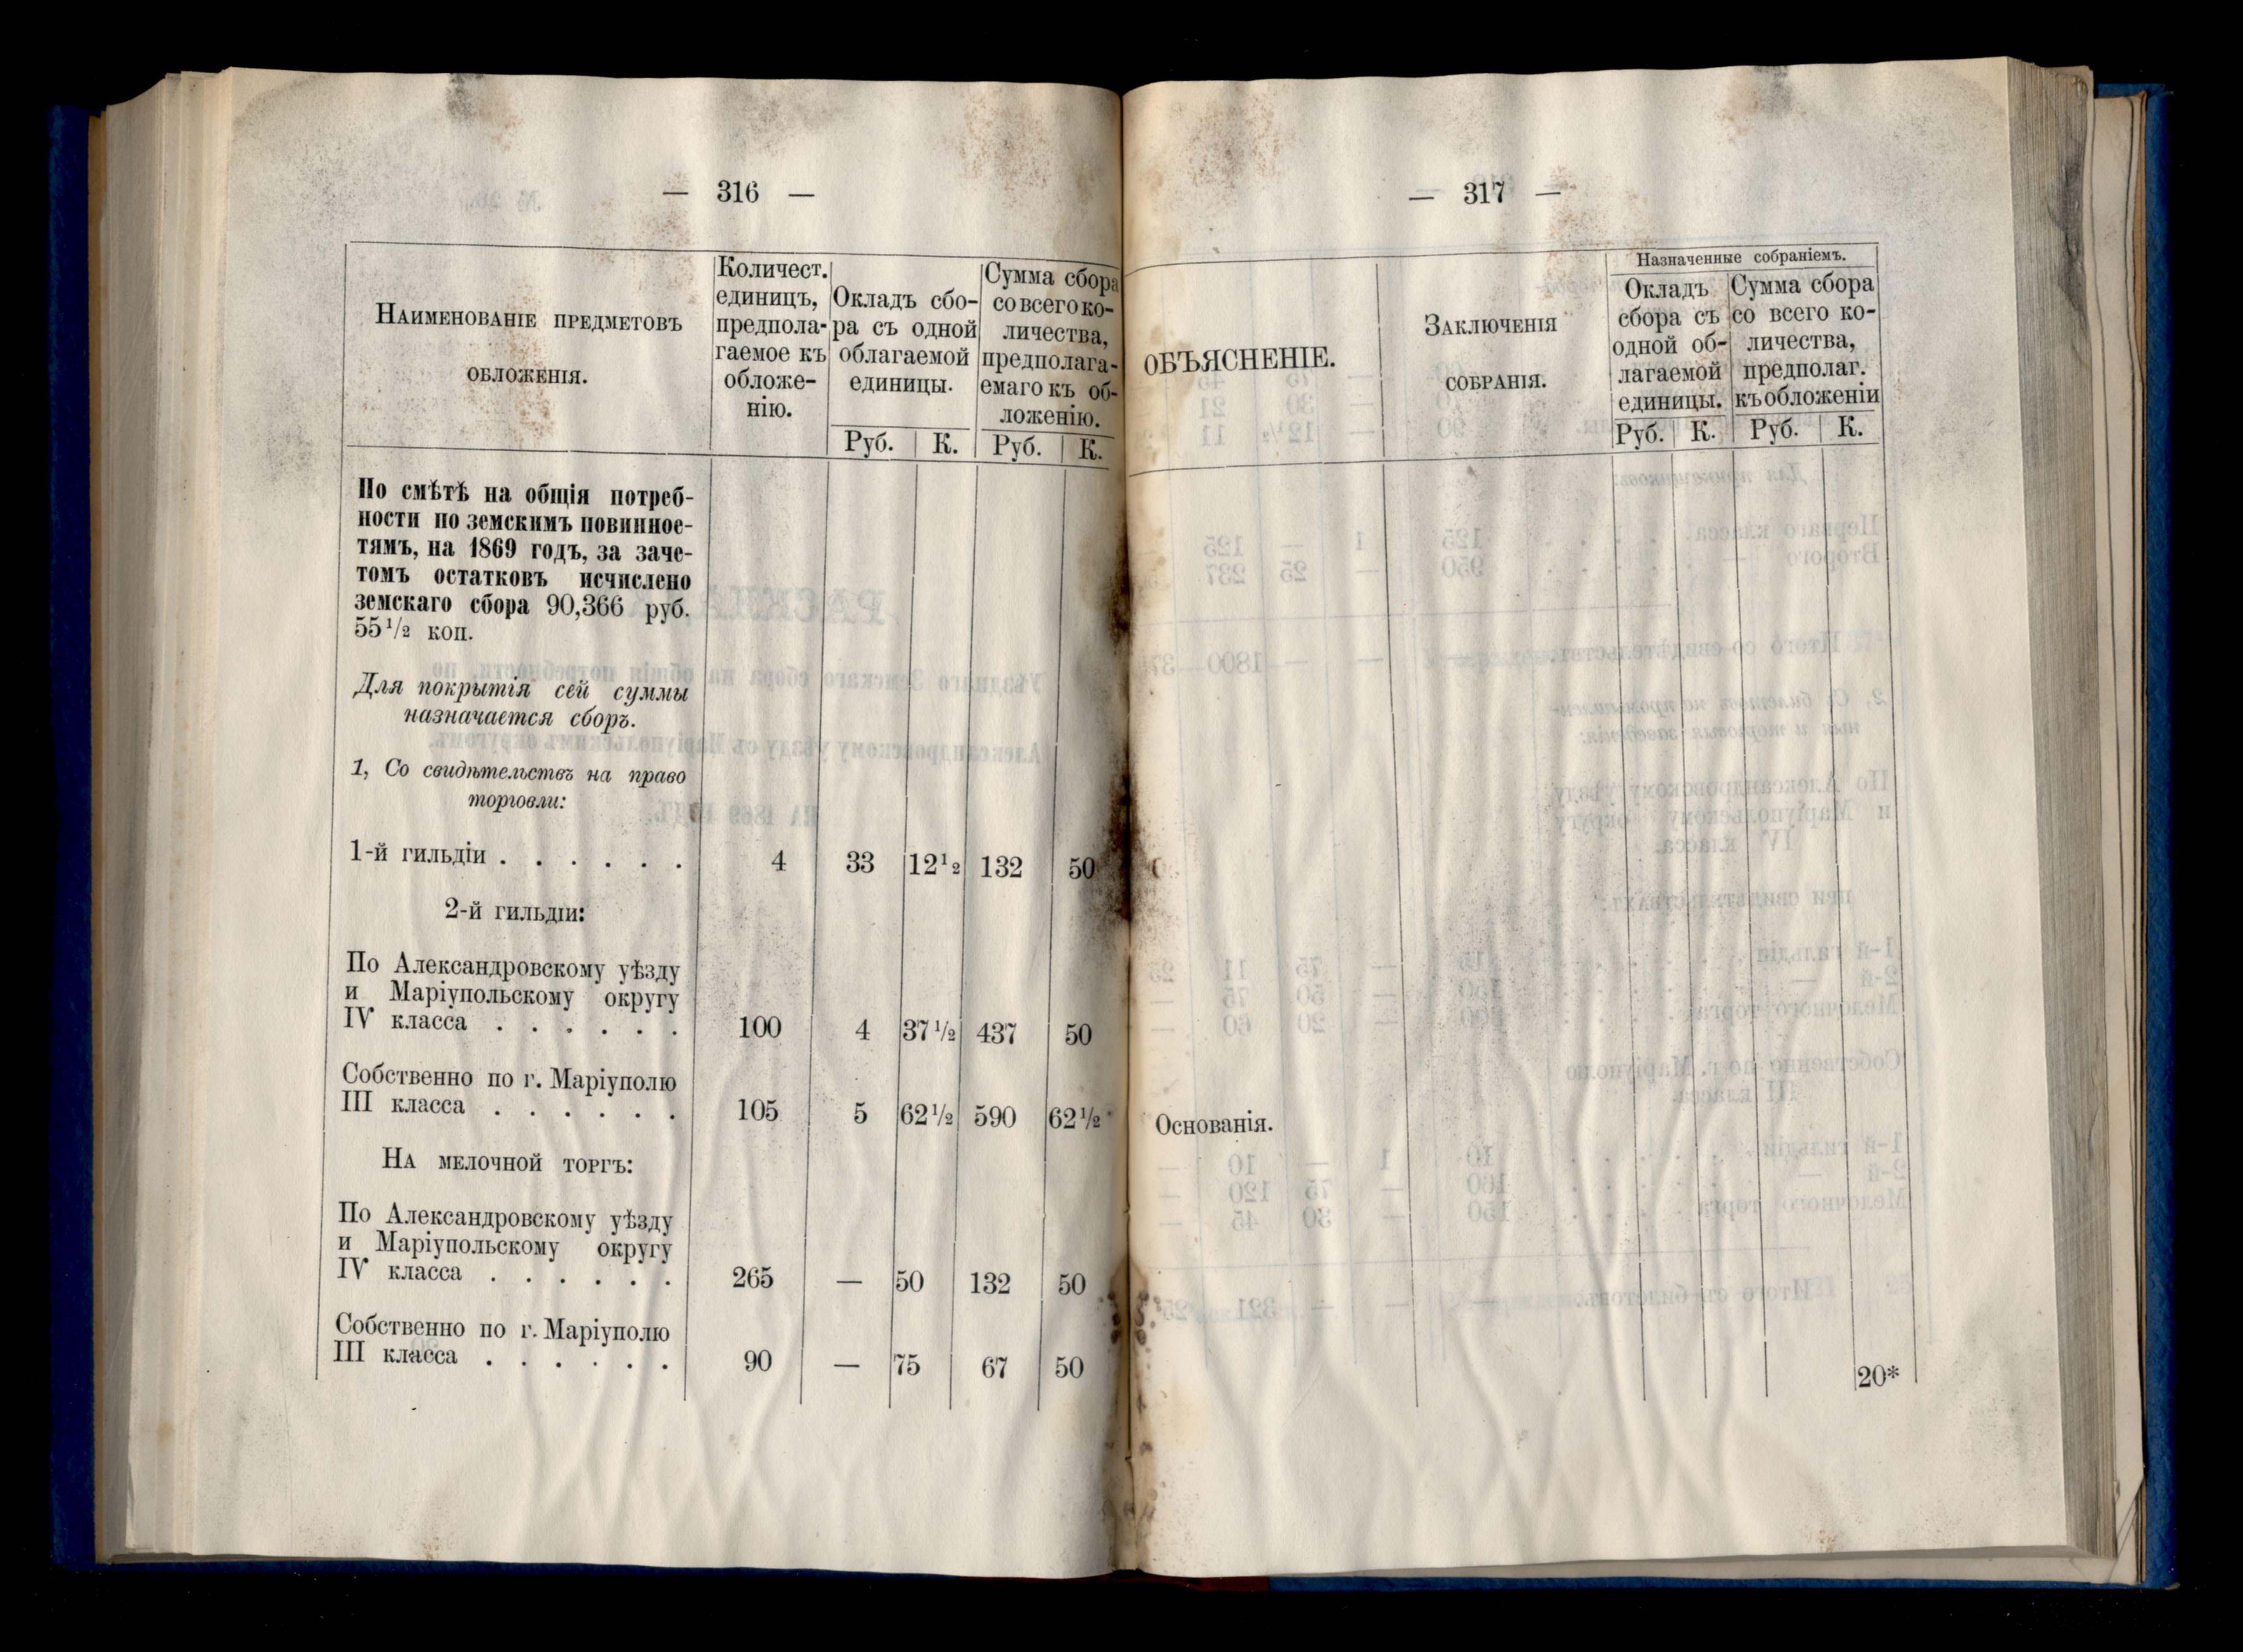 — 316 —
Наименованіе предметовъ
обложенія.
Количест.
единицъ,
предпола-
гаемое къ
обложе-
нію.
Окладъ сбо-
ра съ одной
облагаемой
единицы.
Руб. К.
Сумма сбора
со всего ко-
личества,
предполага-
емаго къ об-
ложенію.
Руб. К.
По смѣтѣ на общія потреб-
ности по земскимъ повиннос-
тямъ, на 1869 годъ, за заче-
томъ остатковъ исчислено
земскаго сбора 90,366 руб.
55 1/2 коп.
Для покрытія сей суммы
назначается сборъ.
1, Со свидѣтельствъ на право
торговли:
1-й гильдіи . . . . . . 4 33 12 1/2 132 50
2-й гильдіи:
По Александровскому уѣзду
и Маріупольскому округу
IV класса . . . . . . 100 4 37 1/2 437 50
Собственно по г. Маріуполю
III класса . . . . . . 105 5 62 1/2 590 62 1/2
На мелочной торгъ:
По Александровскому уѣзду
и Маріупольскому округу
IV класса . . . . . . 265 — 50 132 50
Собственно по г. Маріуполю
III класса . . . . . . 90 — 75 67 50
— 317 —
ОБЪЯСНЕНІЕ.
Заключенія
собранія.
Назначенные собраніемъ.
Окладъ
сбора съ
одной об-
лагаемой
единицы.
Руб. К.
Сумма сбора
со всего ко-
личества,
предполаг.
къ обложеніи
Руб. К.
Основанія.
20*